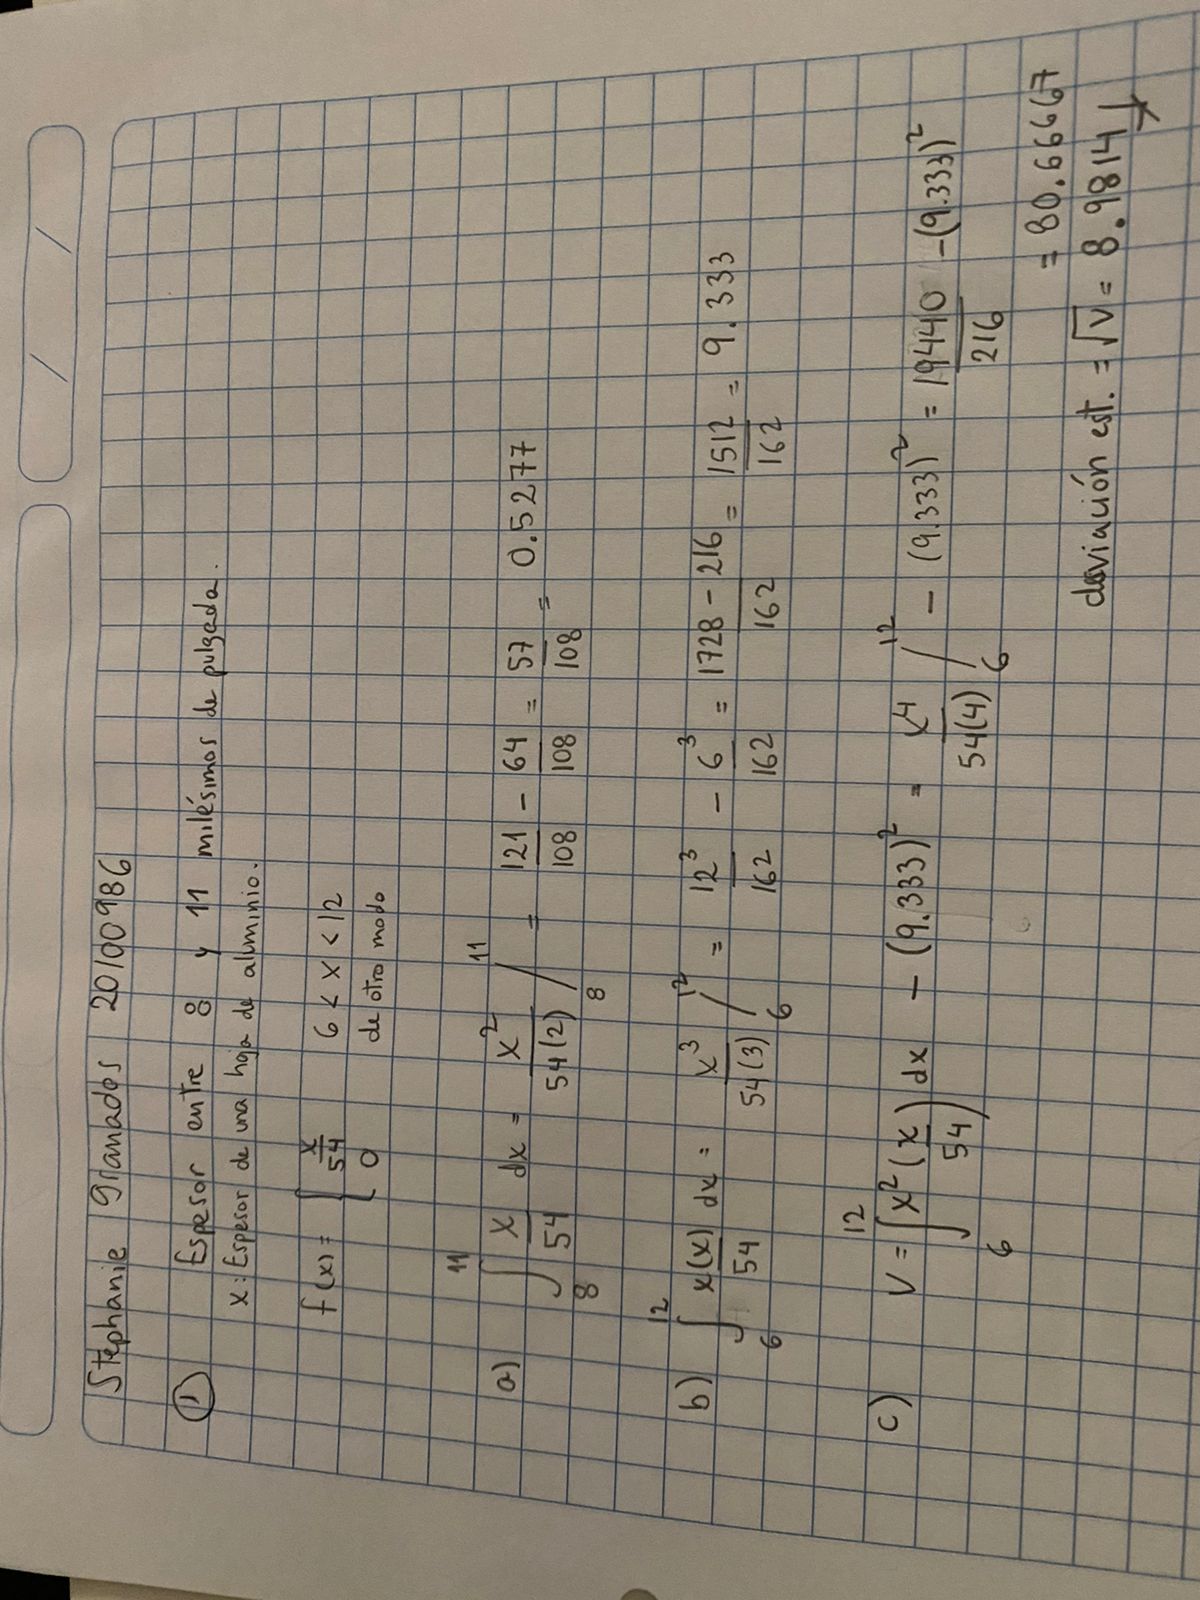 Stephanie Granados 20100986
① Espesor entre 8 y 11 milésimos de pulgada.
x: Espesor de una hoja de aluminio.
f(x) = { x/54 6 < x < 12
0 de otro modo
a) ∫₈¹¹ x/54 dx = x²/54(2) /₈¹¹ = 121/108 - 64/108 = 57/108 = 0.5277
b) ∫₆¹² x(x)/54 dx = x³/54(3) /₆¹² = 12³/162 - 6³/162 = 1728 - 216/162 = 1512/162 = 9.333
c) V = ∫₆¹² x²(x/54) dx - (9.333)² = x⁴/54(4) /₆¹² - (9.333)² = 19440/216 - (9.333)²
= 80.66667
desviación est. = √V = 8.9814